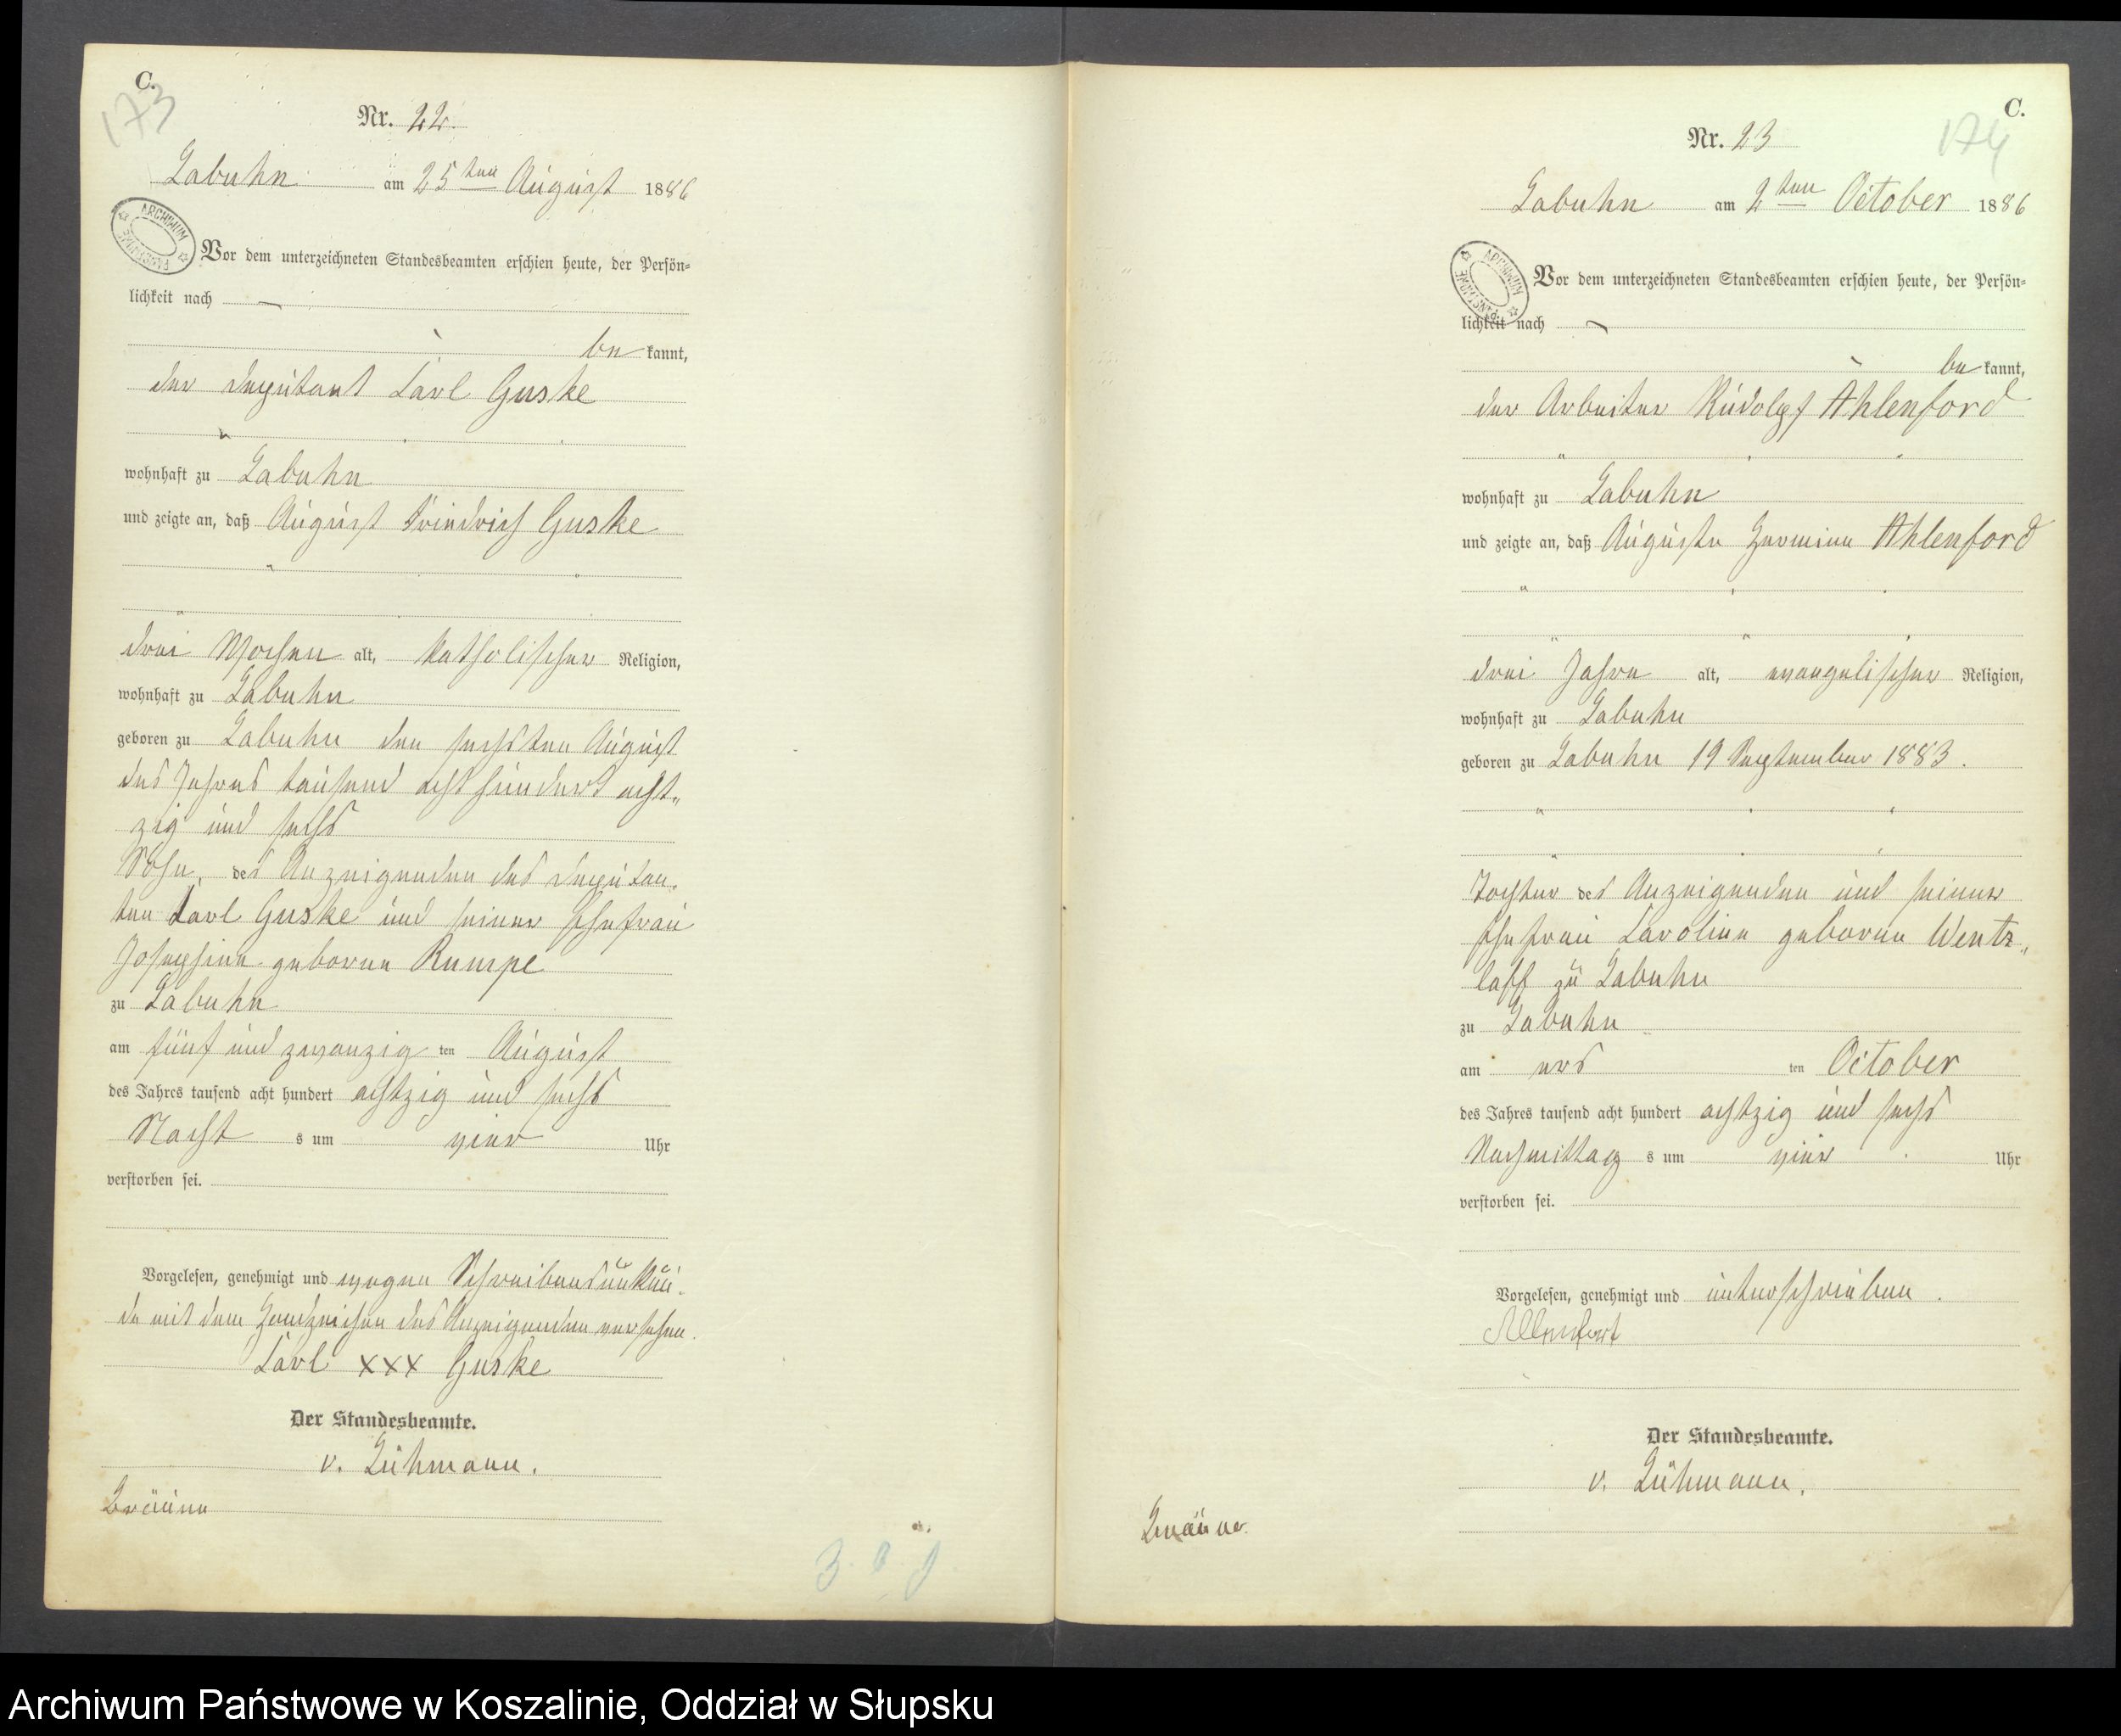 C.
173
Nr. 22.
Labuhn am 25ten August 1886
ARCHIWUM PAŃSTWOWE
Vor dem unterzeichneten Standesbeamten erschien heute, der Persön=
lichkeit nach
be kannt,
der Deputant Carl Guske
wohnhaft zu Labuhn
und zeigte an, daß August Friedrich Guske
drei Wochen alt, katholischer Religion,
wohnhaft zu Labuhn
geboren zu Labuhn den sechsten August
des Jahres tausend acht hundert acht„
zig und sechs
Sohn, des Anzeigenden des Deputan„
ten Carl Guske und seiner Ehefrau
Josephine geborene Rumpe
zu Labuhn
am fünf und zwanzig ten August
des Jahres tausend acht hundert achtzig und sechs
Nacht s um vier Uhr
verstorben sei.
Vorgelesen, genehmigt und wegen Schreibensunkun„
de mit dem Handzeichen des Anzeigenden versehen.
Carl xxx Guske
Der Standesbeamte.
v. Lühmann.
Bräune
3.
C.
174
Nr. 23
Labuhn am 2ten October 1886
ARCHIWUM PAŃSTWOWE
Vor dem unterzeichneten Standesbeamten erschien heute, der Persön=
lichkeit nach
be kannt,
der Arbeiter Rudolpf Ahlenford
wohnhaft zu Labuhn
und zeigte an, daß Auguste Hermine Ahlenford
drei Jahre alt, evangelischer Religion,
wohnhaft zu Labuhn
geboren zu Labuhn 19 September 1883.
Tochter des Anzeigenden und seiner
Ehefrau Caroline geborene Wentz„
laff zu Labuhn
zu Labuhn
am ers ten October
des Jahres tausend acht hundert achtzig und sechs
Nachmittag s um vier Uhr
verstorben sei.
Vorgelesen, genehmigt und unterschrieben.
Allenfort
Der Standesbeamte.
v. Lühmann.
Bräune.
Archiwum Państwowe w Koszalinie, Oddział w Słupsku